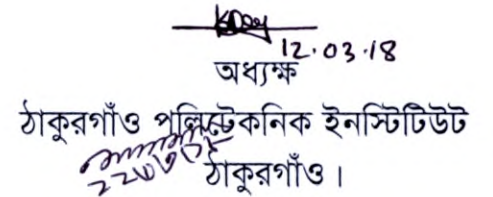 12.03.18
অধ্যক্ষ
ঠাকুরগাঁও পলিটেকনিক ইনস্টিটিউট
ঠাকুরগাঁও।